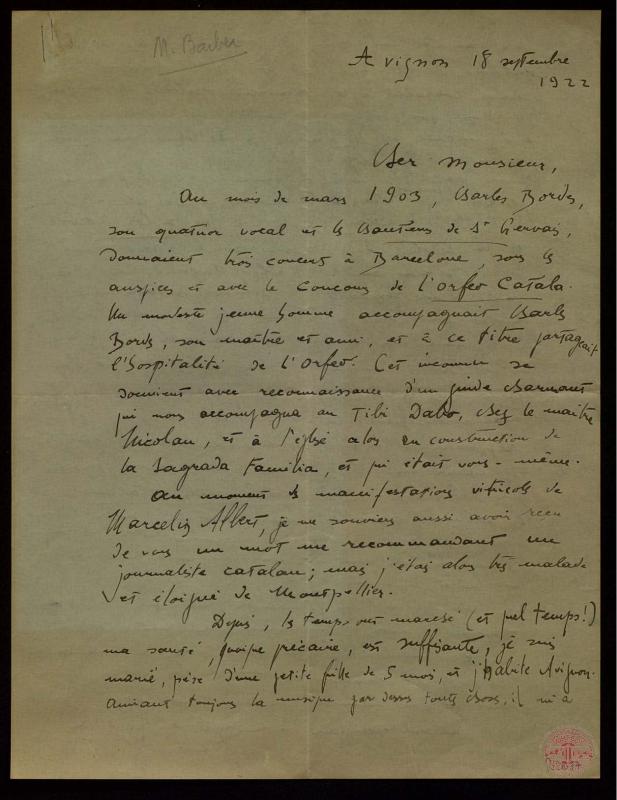 M. Barber
Avignon 18 septembre
1922
Cher Monsieur,
Au mois de mars 1903, Charles Bordes,
son quatuor vocal et les Chanteurs de St Gervais,
donnaient trois concerts à Barcelone, sous les
auspices et avec le concours de l'Orfeo Catala.
Un modeste jeune homme accompagnait Charles
Bordes, son maître et ami, et à ce titre partageait
l'hospitalité de l'Orfeo. Cet inconnu se
souvient avec reconnaissance d'un guide charmant
qui nous accompagna au Tibi Dabo, chez le maître
Nicolau, et à l'église alors en construction de
la Sagrada Familia, et qui était vous-même.
Au moment des manifestations viticoles de
Marcelin Albert, je me souviens aussi avoir reçu
de vous un mot me recommandant un
journaliste catalan ; mais j'étais alors très malade
et éloigné de Montpellier.
Depuis, les temps ont marché (et quel temps!)
ma santé, quoique précaire, est suffisante, je suis
marié, père d'une petite fille de 5 mois, et j'habite Avignon.
Aimant toujours la musique par dessus toute chose, il m'a